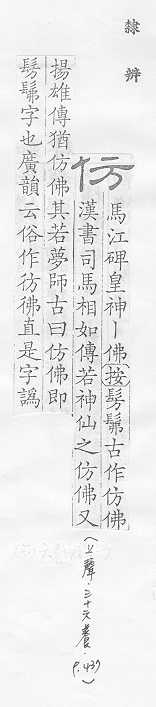 隸辨
仿
馬江碑皇神丨佛按髣髴古作仿佛
漢書司馬相如傳若神仙之仿佛又
揚雄傳猶仿佛其若夢師古曰仿佛即
髣髴字也廣韻云俗作彷彿直是字譌
(上聲·三十六養·P.437)